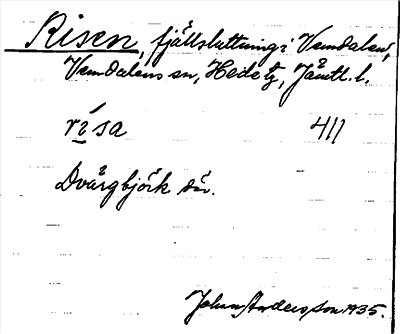 Risen, fjällsluttning i Vemdalen,
Vemdalens sn, Hede tg, Jämtl. l.
rí̱sa 411
Dvärgbjörk där.
Johan Andersson 1935.